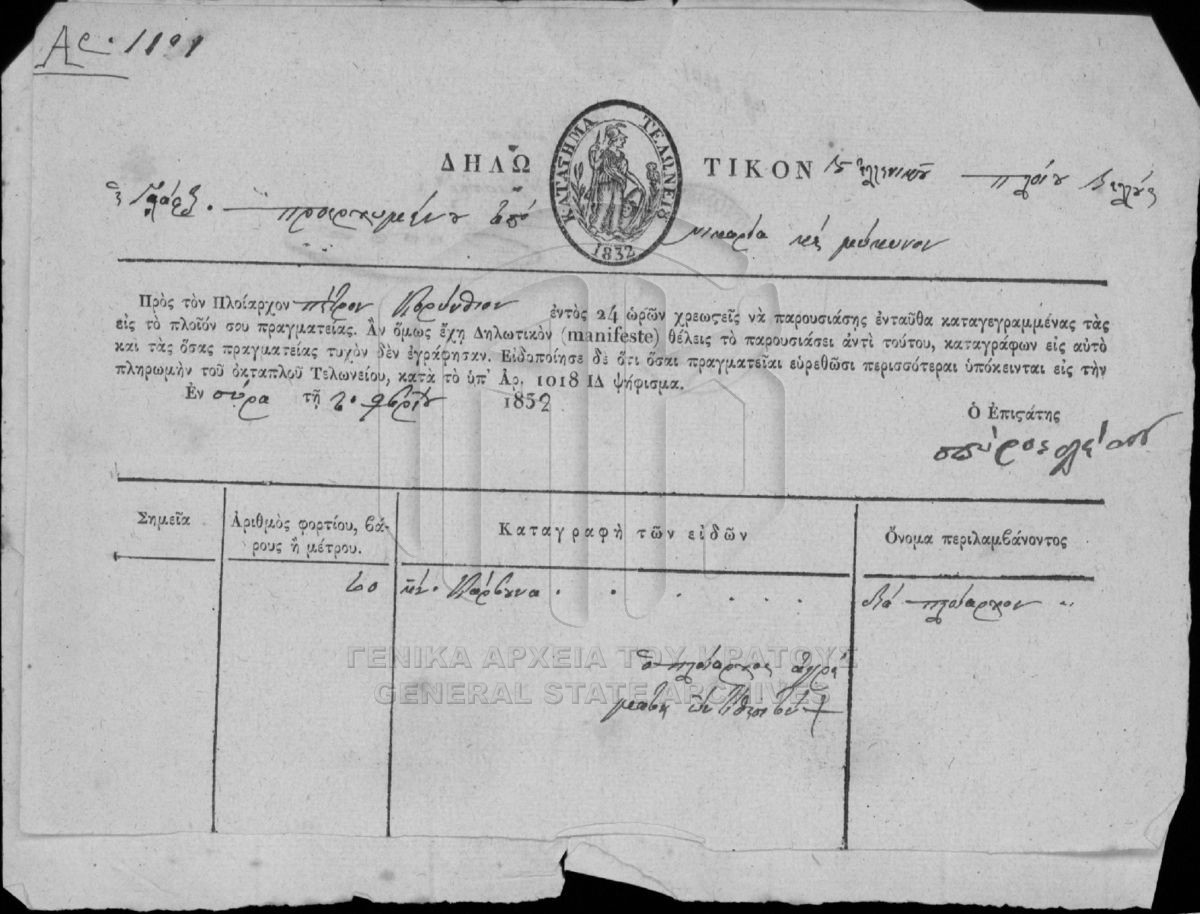 Αρ. 1191
ΚΑΤΑΣΤΗΜΑ ΤΕΛΩΝΕΙΟ
1832
ΔΗΛΩ ΤΙΚΟΝ πλοίου
προερχομένου ἀπό νικαρία κὲ μύκωνον
Πρὸς τὸν Πλοίαρχον πέτρον ἐντὸς 24 ὡρῶν χρεωςεῖς νὰ παρουσιάσῃς ἐνταῦθα καταγεγραμμένας τὰς
εἰς τὸ πλοῖόν σου πραγματείας. Ἂν ὅμως ἔχῃ Δηλωτικὸν (manifeste) θέλεις τὸ παρουσιάσει ἀντὶ τούτου, καταγράφων εἰς αὐτὸ
καὶ τὰς ὅσας πραγματείας τυχὸν δὲν ἐγράφησαν. Εἰδοποίησε δὲ ὅτι ὅσαι πραγματεῖαι εὑρεθῶσι περισσότεραι ὑπόκεινται εἰς τὴν
πληρωμὴν τοῦ ὀκταπλοῦ Τελωνείου, κατὰ τὸ ὑπ' Ἀρ. 1018 ΙΔ ψήφισμα.
Ἐν σύρα τῇ 1832
Ὁ Ἐπιςάτης
Σημεῖα
Ἀριθμὸς φορτίου, βά-
ρους ἢ μέτρου.
Καταγραφὴ τῶν εἰδῶν
Ὄνομα περιλαμβάνοντος
κάρβουνα πλοίαρχον
ὁ πλοίαρχος
ΓΕΝΙΚΑ ΑΡΧΕΙΑ ΤΟΥ ΚΡΑΤΟΥΣ
GENERAL STATE ARCHIVES